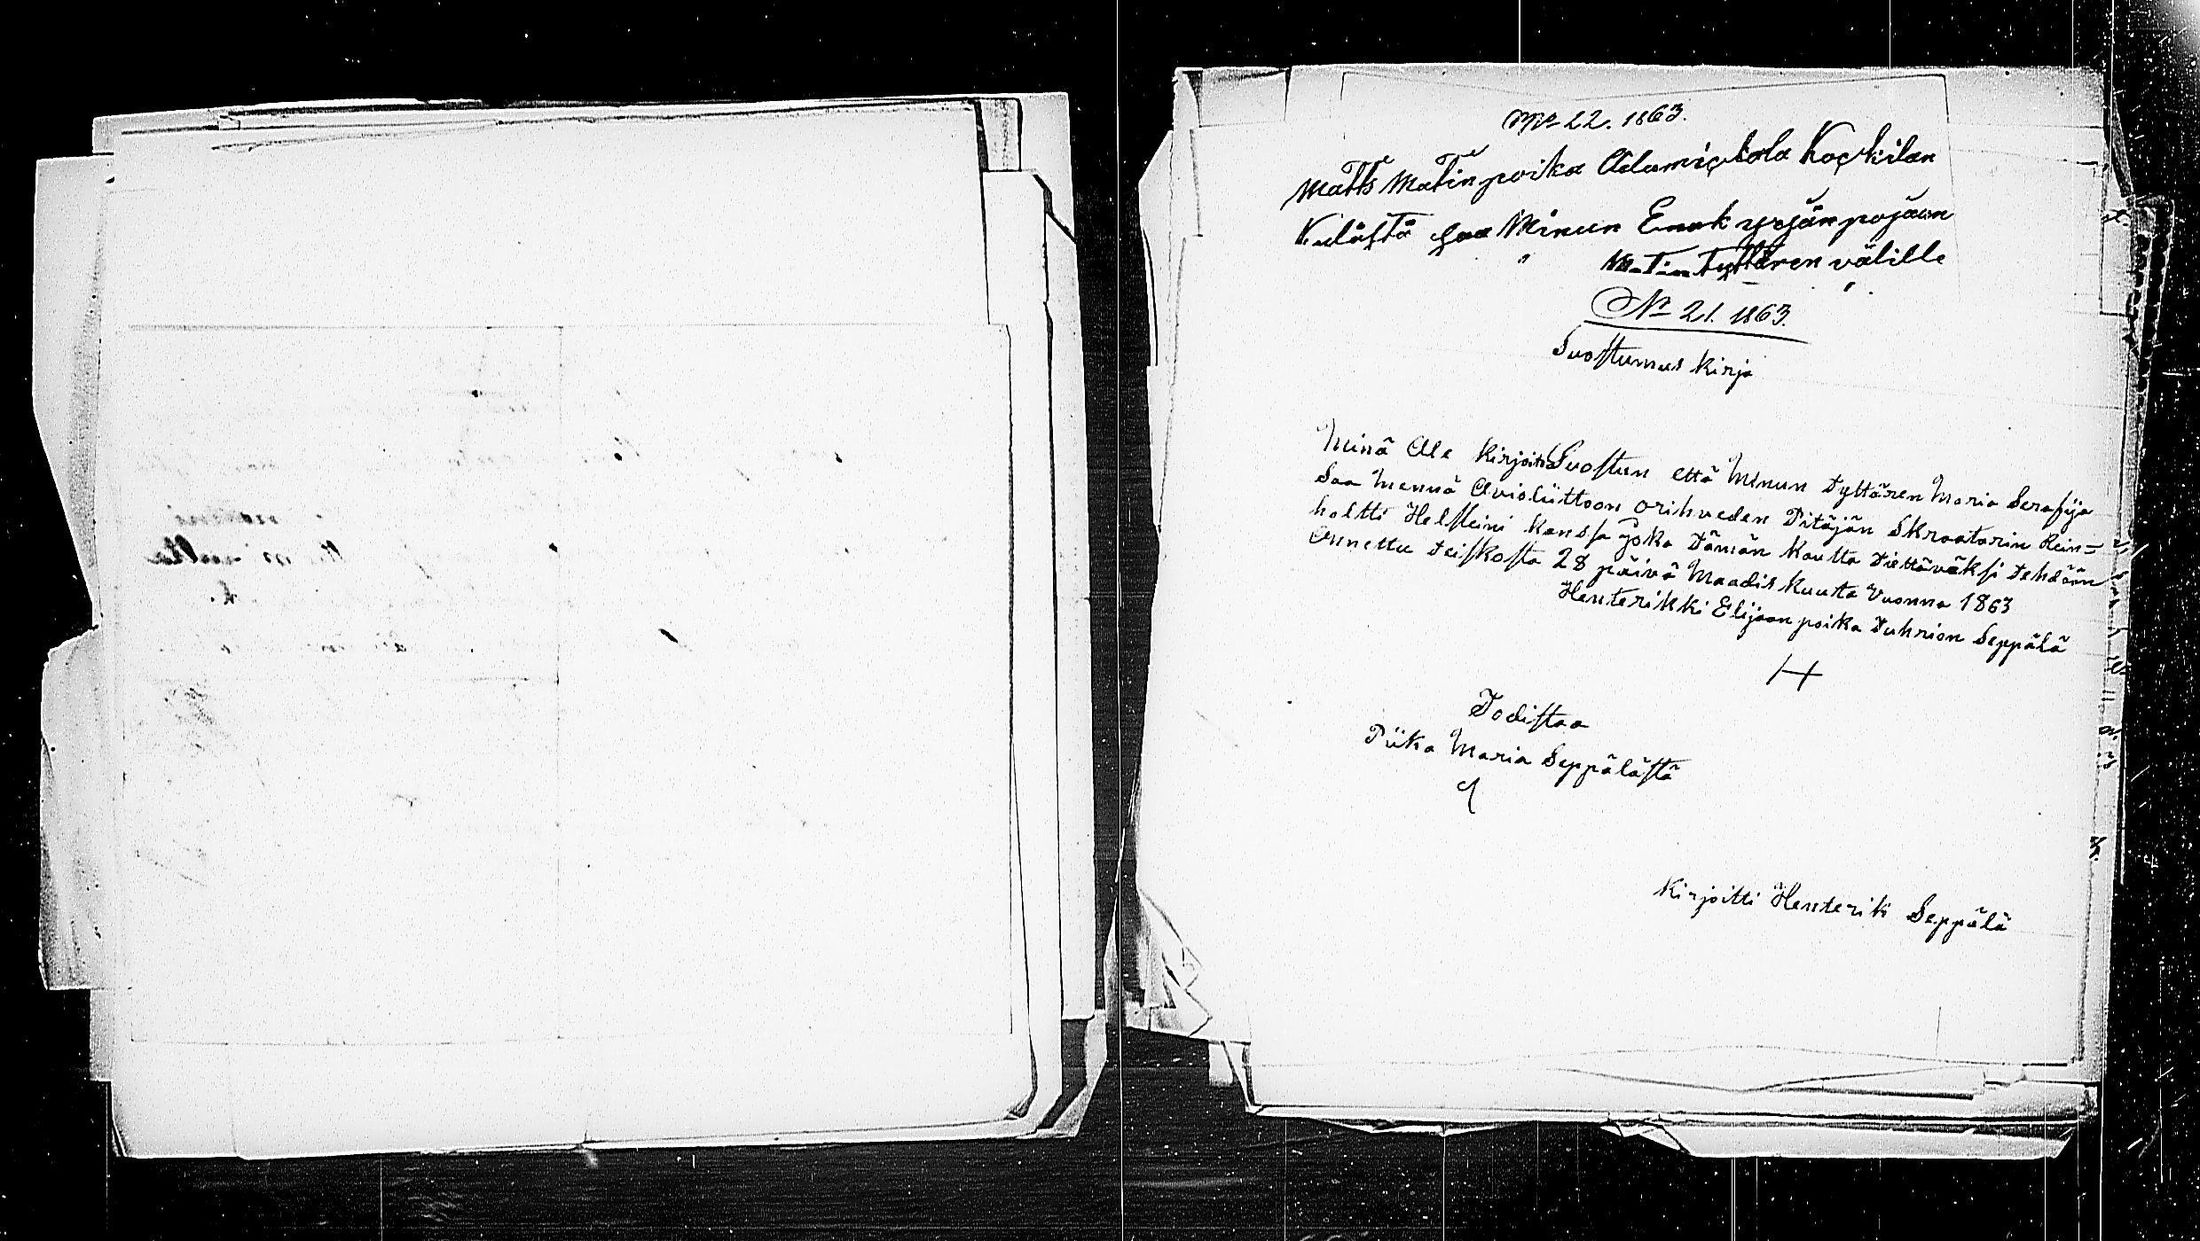 No 22. 1863.
Matts Matin poika Adamiskala Koskilan
Kylästä saa Minun Enok yrjänpojaan
Matin Tyttären välille
No 21. 1863.
Suostumus Kirja
Minä Ale Kirjoitta Suostun että Minun Tyttären Maria Serafija
Saa Mennä Avioliittoon orihveden Pitäjän Skraatarin Rein=
holtti Helsteini kanssa joka Tämän kautta Tiettäväksi Tehdään
Annettu Teiskosta 28 päivä Maadiskuusta Vuonna 1863
Henterikki Elijaan poika Tuhrion Seppälä
Todistaa
Piika Maria Seppälästä
Kirjoitti Henterik Seppälä